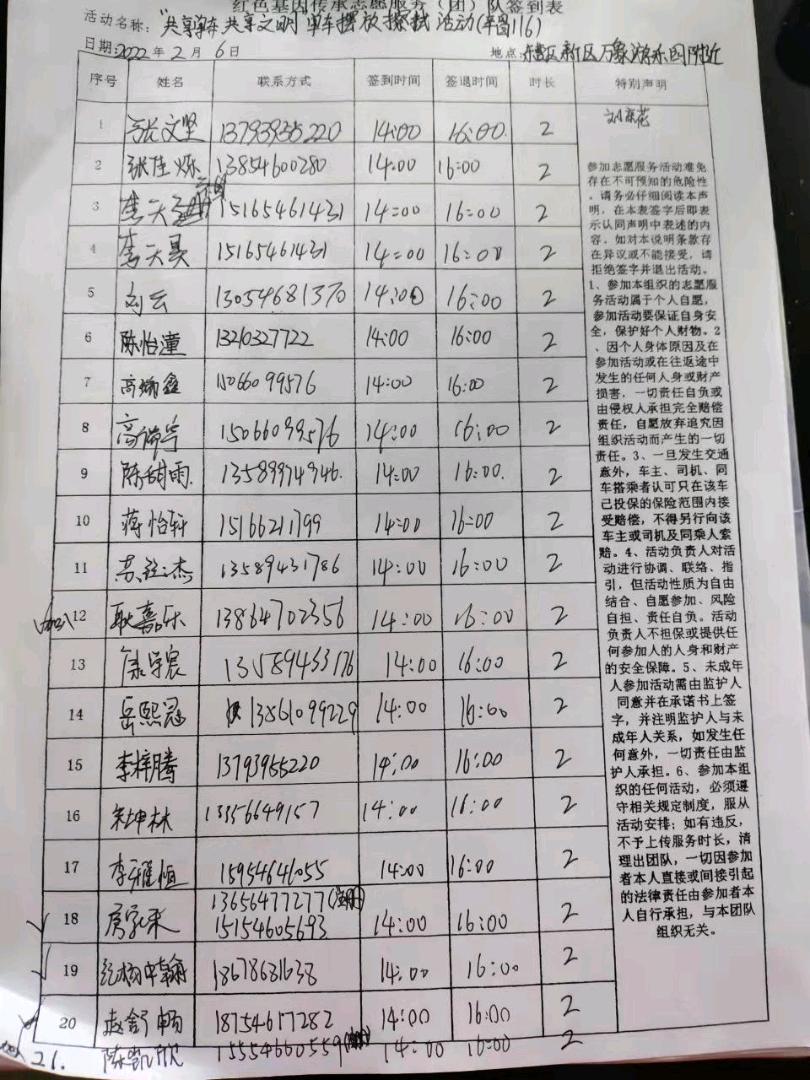 红色基因传承志愿服务(团)队签到表
活动名称:"共享单车 共享文明 单车摆放擦拭活动(年畜116)
日期:2022年2月6日 地点:东营区新区万象游乐园附近
序号 姓名 联系方式 签到时间 签退时间 时长 特别声明
1 张文坚 13793935220 14:00 16:00 2
2 张佳烁 13854600280 14:00 16:00 2
3 李天 15165461431 14:00 16:00 2
4 李天昊 15165461431 14:00 16:00 2
5 刘云 13054681370 14:00 16:00 2
6 陈怡潼 13210327722 14:00 16:00 2
7 高瑞鑫 15066099576 14:00 16:00 2
8 高瑞宁 15066099576 14:00 16:00 2
9 陈甜雨. 13589974946. 14:00 16:00. 2
10 蒋怡轩 15166211799 14:00 16:00 2
11 杰 13589431786 14:00 16:00 2
12 耿嘉乐 13864702356 14:00 16:00 2
13 宸 13589433176 14:00 16:00 2
14 岳熙冠 13861099229 14:00 16:00 2
15 李梓腾 13793955220 14:00 16:00 2
16 坤林 13356649157 14:00 16:00 2
17 李雅恒 15954646055 14:00 16:00 2
18 13656477277
15154605693 14:00 16:00 2
19 18678681638 14:00 16:00 2
20 赵舒畅 18754617282 14:00 16:00 2
21. 陈凯欣 15554660559 14:00 16:00 2
刘京花
参加志愿服务活动难免
存在不可预知的危险性
。请务必仔细阅读本声
明,在本表签字后即表
示认同声明中表述的内
容。如对本说明条款存
在异议或不能接受,请
拒绝签字并退出活动。
1、参加本组织的志愿服
务活动属于个人自愿,
参加活动要保证自身安
全,保护好个人财物。2
、因个人身体原因及在
参加活动或在往返途中
发生的任何人身或财产
损害,一切责任自负或
由侵权人承担完全赔偿
责任,自愿放弃追究因
组织活动而产生的一切
责任。3、一旦发生交通
意外,车主、司机、同
车搭乘者认可只在该车
己投保的保险范围内接
受赔偿,不得另行向该
车主或司机及同乘人索
赔。4、活动负责人对活
动进行协调、联络、指
引,但活动性质为自由
结合、自愿参加、风险
自担、责任自负。活动
负责人不担保或提供任
何参加人的人身和财产
的安全保障。5、未成年
人参加活动需由监护人
同意并在承诺书上签
字,并注明监护人与未
成年人关系,如发生任
何意外,一切责任由监
护人承担。6、参加本组
织的任何活动,必须遵
守相关规定制度,服从
活动安排;如有违反,
不予上传服务时长,清
理出团队,一切因参加
者本人直接或间接引起
的法律责任由参加者本
人自行承担,与本团队
组织无关。